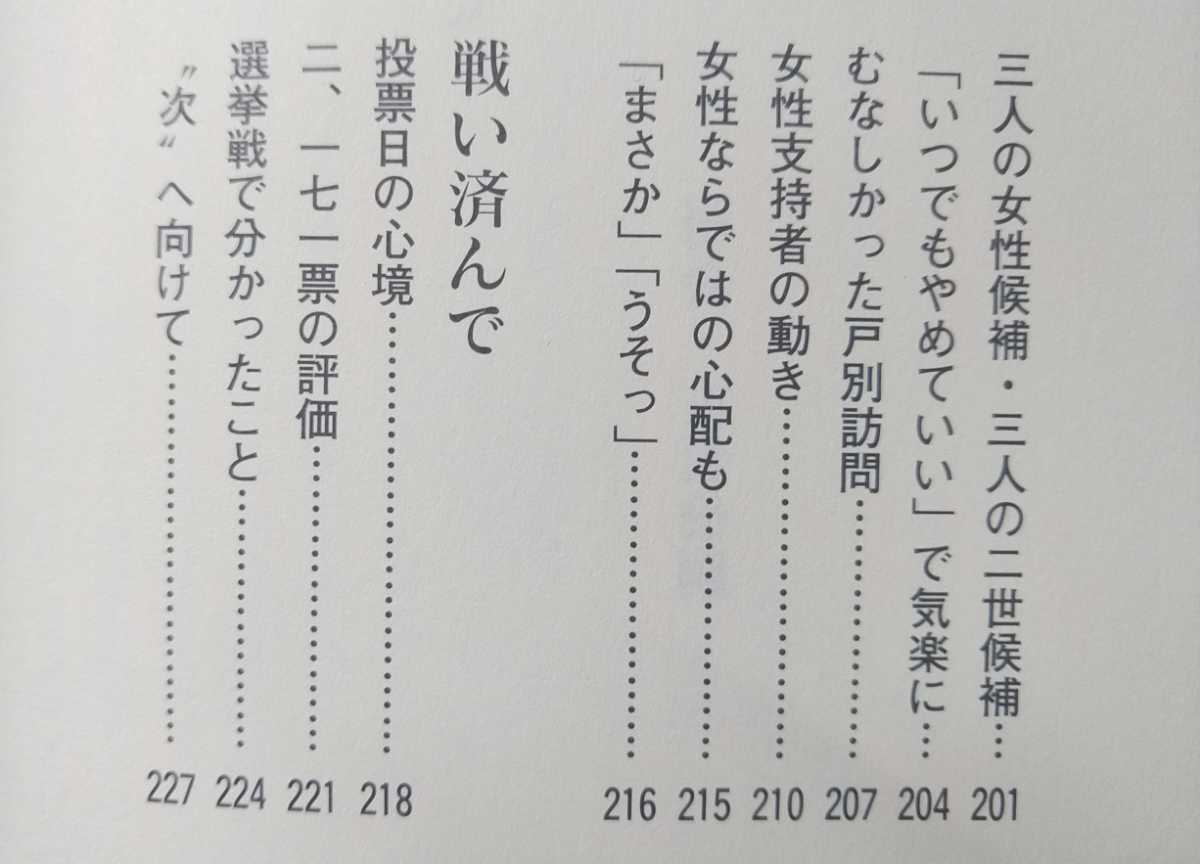 三人の女性候補・三人の二世候補…201
「いつでもやめていい」で気楽に…204
むなしかった戸別訪問………………207
女性支持者の動き………………………210
女性ならではの心配も………………215
「まさか」「うそっ」…………………216
戦い済んで
投票日の心境……………………………218
二、一七一票の評価……………………221
選挙戦で分かったこと………………224
〝次〟へ向けて…………………………227